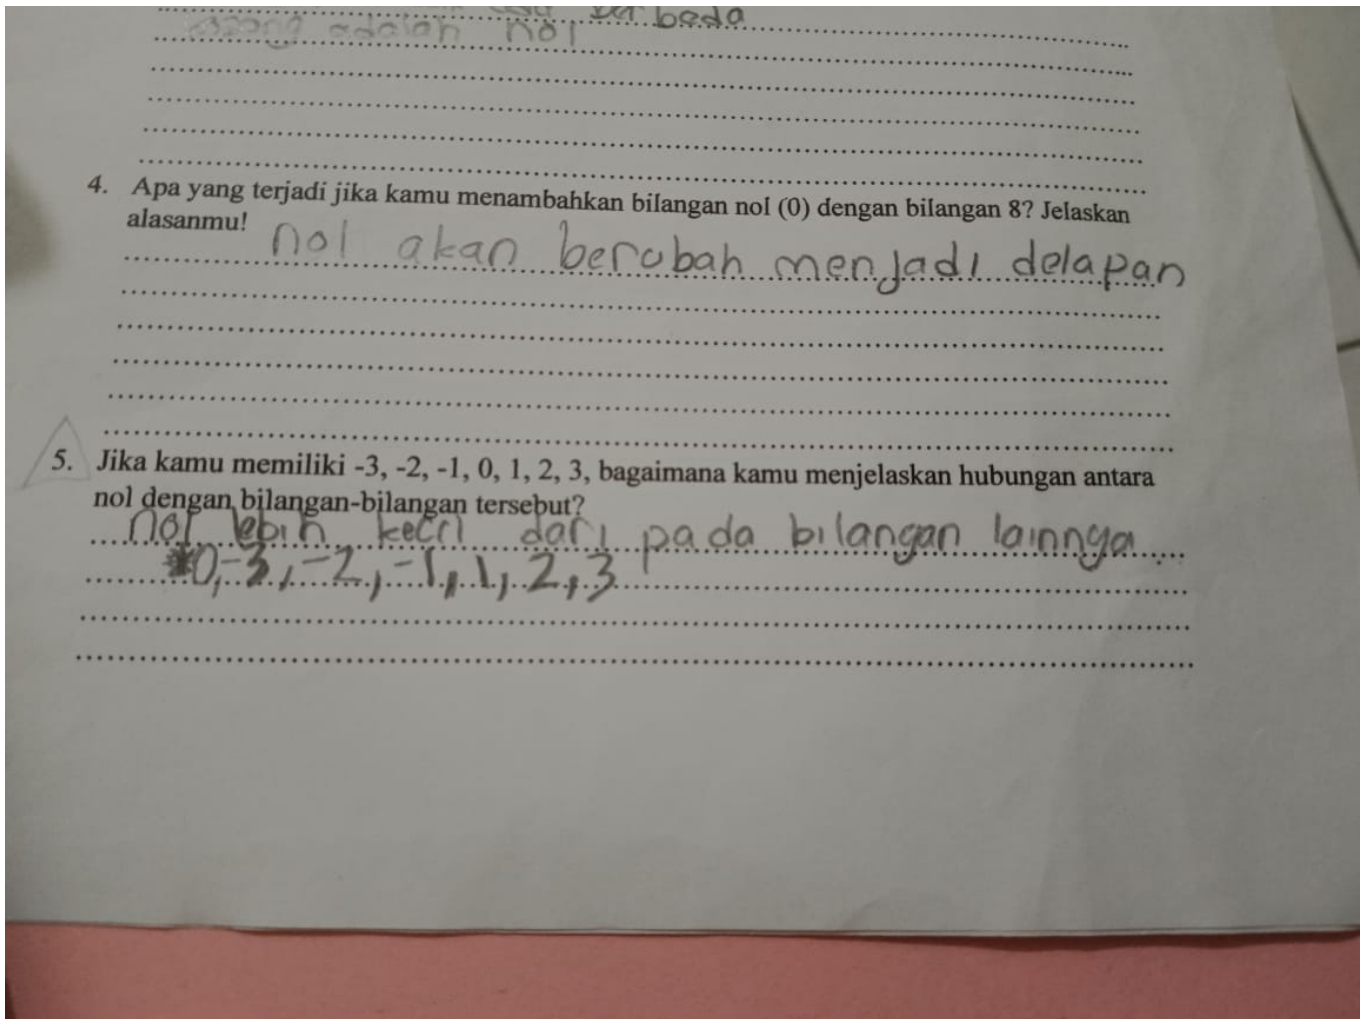 berbeda
adalah nol
4. Apa yang terjadi jika kamu menambahkan bilangan nol (0) dengan bilangan 8? Jelaskan
alasanmu!
nol akan berubah menjadi delapan
5. Jika kamu memiliki -3, -2, -1, 0, 1, 2, 3, bagaimana kamu menjelaskan hubungan antara
nol dengan bilangan-bilangan tersebut?
nol lebih kecil dari pada bilangan lainnya
0, -3, -2, -1, 1, 2, 3